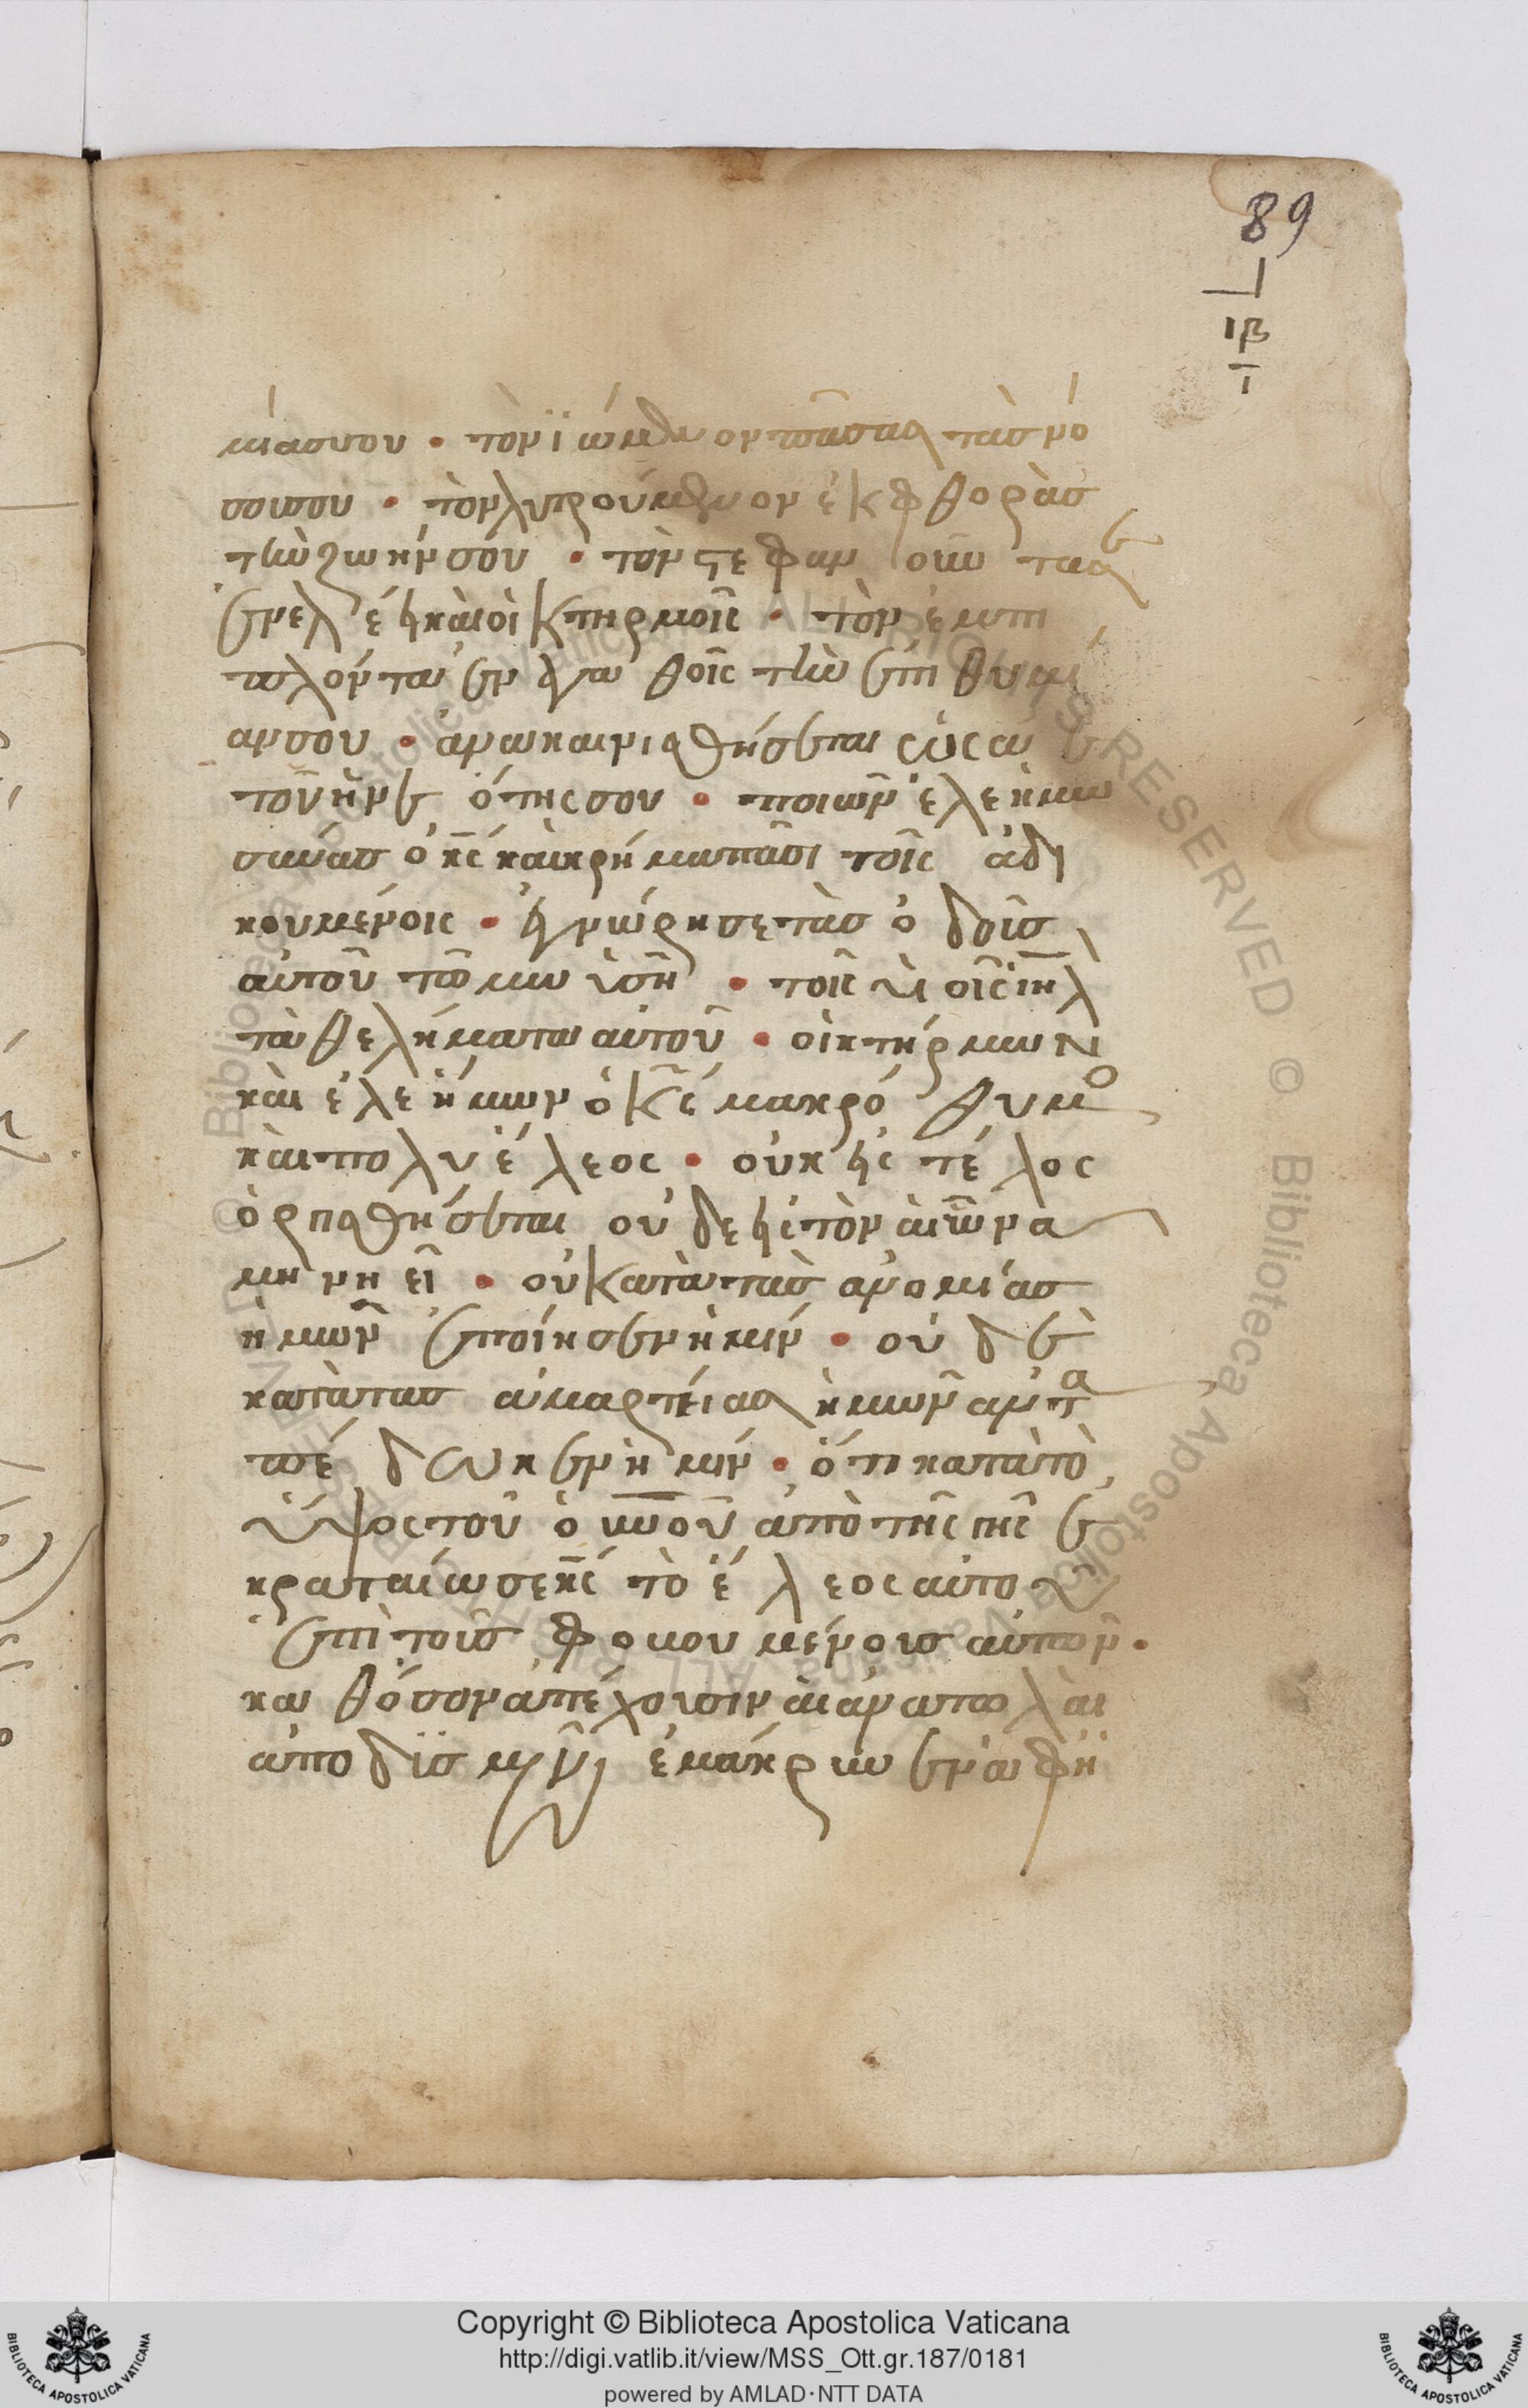 89
ιβ
μίασσου · τὸν ἰώμενον πάσας τὰσ νό
σουσου · τὸν λυτρούμενον ἐκ φθορὰσ
τὴν ζωήν σου · τὸν στεφαν οῦν τασε
ἐν ελέει καὶ οἰκτηρμοῖς · τὸν ἐμπι
πλόντα ἐν ἀγα θοῖς τὴν ἐπι θυμί
αν σου · ἀνακαινισθήσεται ὡς ἀ ε
τοῦ ἡ νε ότης σου · ποιῶν ἐλεημω
σύνασ ὁ κς καὶ κρήμα πᾶσι τοῖς ἀδι
κουμένοις · ἐγνώρησε τὰσ ὁ δοῦσ
αὐτοῦ τῶ μω υσῆ · τοῖς υἱ οῖς ιηλ
τὰ θελήματα αὐτοῦ · οἰκτήρμων
καὶ ἐλεήμων ὁ κς μακρό θυμο
καὶ πολυέ λεος · οὐκ εἰς τέ λος
ὀργισθήσεται οὐ δε εἰς τὸν αἰῶνα
μηνηεῖ · οὐ κατὰ τὰσ ανομίασ
ἡμῶν ἐποίησεν ἡμῖν · οὐ δὲ
κατὰ τασ ἁμαρτείας ἡμῶν ἀντα
πέ δωκεν ἡμῖν · ὅτι κατὰ τὸ
ὕψος τοῦ ουνοῦ ἀπὸ τῆς γῆς ἐ
κραταίωσε κς τὸ ἔ λεος αὐτοῦ
ἐπὶ τοῦσ φοβουμένουσ αὐτὸν ·
καθόσον ἀπέχουσιν αἰ ἀνατολαὶ
ἀπο δϊσμῶν ἐμάκρυνεν ἀφ ἡ
Copyright © Biblioteca Apostolica Vaticana
http://digi.vatlib.it/view/MSS_Ott.gr.187/0181
powered by AMLAD·NTT DATA